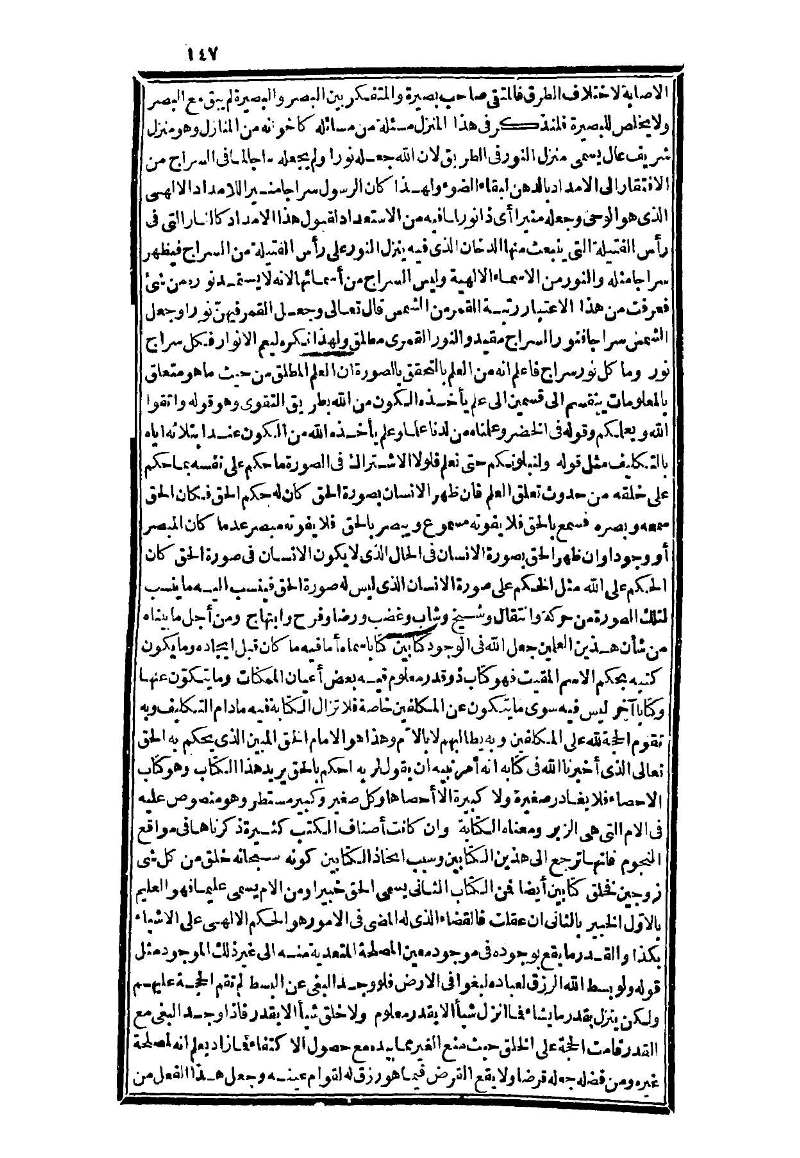 ١٤٧
الاصابة لاختلاف الطرق فالمتقى صاحب بصيرة والمتفكر بين البصر والبصيرة لم يبق مع البصر
ولا يخلص للبصيرة فلنذكر فى هذا المنزل مسئلة من مسائله كاخوانه من المنازل وهو منزل
شريف عال يسمى منزل النور فى الطريق لان الله جعله نورا ولم يجعله سراجا لما فى السراج من
الافتقار الى الامداد بالدهن لبقاء الضوء ولهذا كان الرسول سراجا منيرا للامداد الالهى
الذى هو الوحى وجعله منيرا أى ذا نور لما فيه من الاستعداد لقبول هذا الامداد كالنار التى فى
رأس الفتيلة التى ينبعث منها الدخان الذى فيه ينزل النور على رأس الفتيلة من السراج فيظهر
سراجا مثله والنور من الاسماء الالهية وليس السراج من أسمائها لانه لا يستمد نوره من شئ
فعرفت من هذا الاعتبار رتبة القمر من الشمس قال تعالى وجعل القمر فيهنّ نورا وجعل
الشمس سراجا فنور السراج مقيد والنور القمرى مطلق ولهذا نكره ليعم الانوار فكل سراج
نور وما كل نور سراج فاعلم انه من العلم بالتحقق بالصورة ان العلم المطلق من حيث ما هو متعلق
بالمعلومات ينقسم الى قسمين الى علم يأخذه الكون من الله بطريق التقوى وهو قوله واتقوا
الله ويعلمكم وقوله فى الخضر وعلمناه من لدنا علما وعلم يأخذه الله من الكون عند ابتلائه اياه
بالتكليف مثل قوله ولنبلونكم حتى نعلم فلولا الاشتراك فى الصورة ما حكم على نفسه بما حكم
على خلقه من حدوث تعلق العلم فان ظهر الانسان بصورة الحق كان له حكم الحق فكان الحق
سمعه وبصره فسمع بالحق فلا يفوته مسموع ويبصر بالحق فلا يفوته مبصر عدما كان المبصر
أو وجودا وان ظهر الحق بصورة الانسان فى الحال الذى لا يكون الانسان فى صورة الحق كان
الحكم على الله مثل الحكم على صورة الانسان الذى ليس له صورة الحق فينسب اليه ما ينسب
لتلك الصورة من حركة وانتقال وشيخ وشاب وغضب ورضا وفرح وابتهاج ومن أجل ما بيناه
من شأن هذين العلمين جعل الله فى الوجود كتابين كتابا سماه أما فيه ما كان قبل ايجاده وما يكون
كتبه بحكم الاسم المقيت فهو كتاب ذو قدر معلوم فيه بعض أعيان الممكنات وما يتكون عنها
وكتابا آخر ليس فيه سوى ما يتكون عن المكلفين خاصة فلا تزال الكتابة فيه مادام التكليف وبه
تقوم الحجة لله على المكلفين وبه يطالبهم لا بالامّ وهذا هو الامام الحق المبين الذى يحكم به الحق
تعالى الذى أخبرنا الله فى كتابه انه أمر نبيه ان يقول لربه احكم بالحق يريد هذا الكتاب وهو كتاب
الاحصاء فلا يغادر صغيرة ولا كبيرة الا أحصاها وكل صغير وكبير مستطر وهو منصوص عليه
فى الام التى هى الزبر ومعناه الكتابة وان كانت أصناف الكتب كثيرة ذكرناها فى مواقع
النجوم فانها ترجع الى هذين الكتابين وسبب ايجاد الكتابين كونه سبحانه خلق من كل شئ
زوجين فخلق كتابين أيضا فمن الكتاب الثانى يسمى الحق خبيرا ومن الام يسمى عليما فهو العليم
بالاول الخبير بالثانى ان عقلت فالقضاء الذى له المضى فى الامور هو الحكم الالهى على الاشياء
بكذا والقدر ما يقع بوجوده فى موجود معين المصلحة المتعدية منه الى غير ذلك الموجود مثل
قوله ولو بسط الله الرزق لعباده لبغوا فى الارض فلو وجد البغى عن البسط لم تقم الحجة عليهم
ولكن ينزل بقدر ما يشاء فما أنزل شيأ الا بقدر معلوم ولا خلق شيأ الا بقدر فاذا وجد البغى مع
القدر قامت الحجة على الخلق حيث منع الغير مما بيده مع حصول الاكتفاء فما زاد يعلم انه لمصلحة
غيره ومن فضله جعله قرضا ولا يقع القرض فيما هو رزق له لقوام عينه وجعل هذا الفعل من